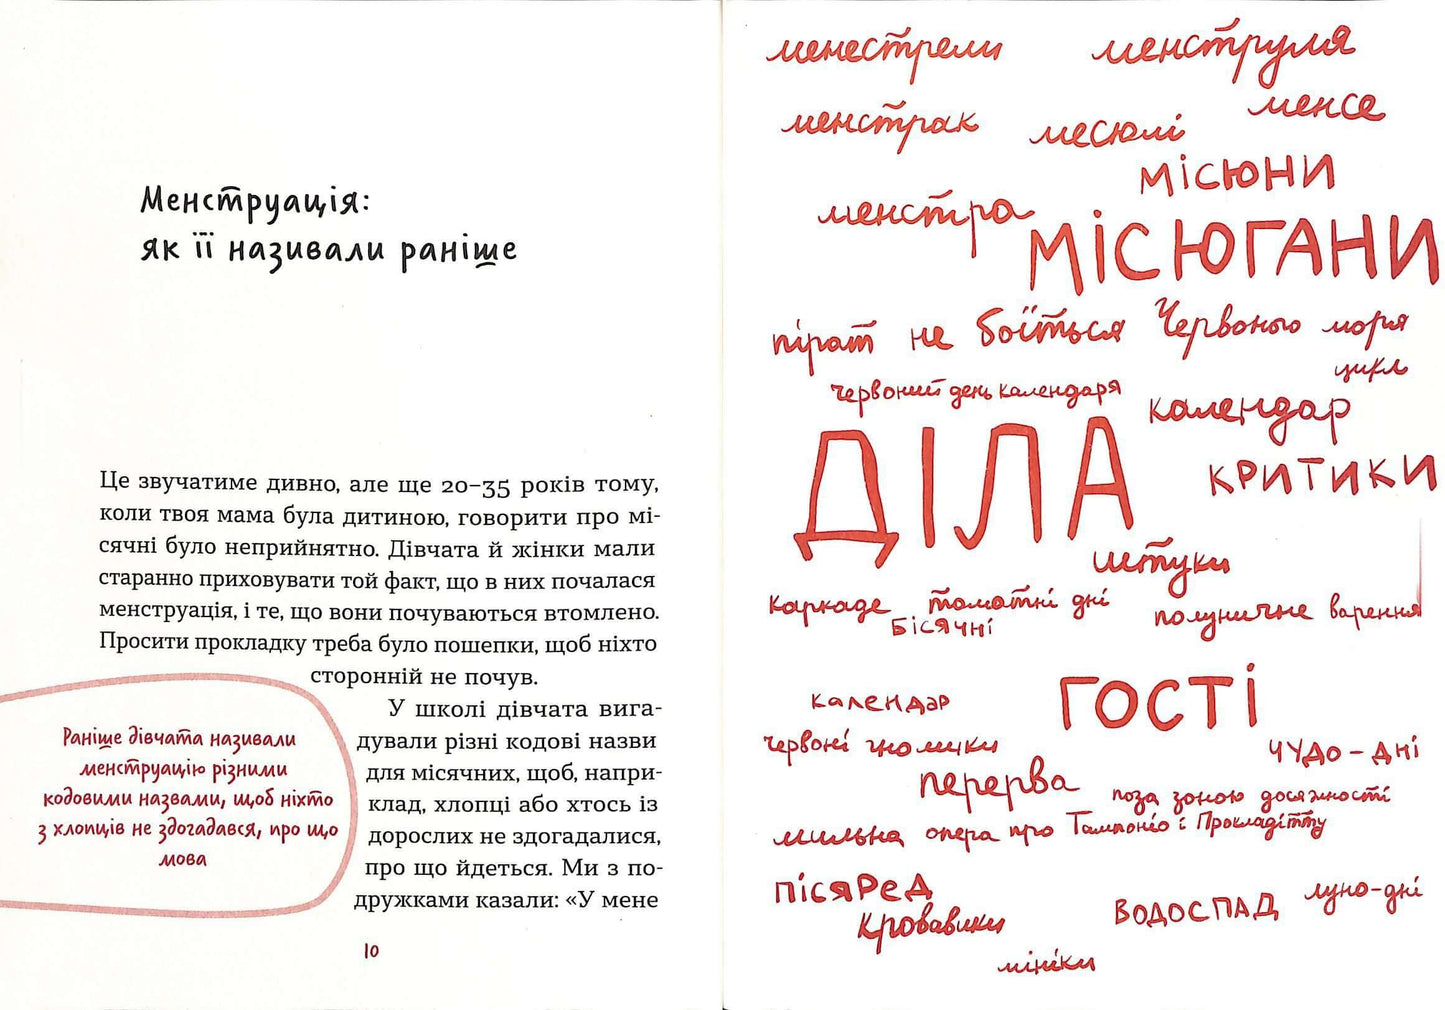 Менструація:
як її називали раніше
Це звучатиме дивно, але ще 20–35 років тому,
коли твоя мама була дитиною, говорити про мі-
сячні було неприйнятно. Дівчата й жінки мали
старанно приховувати той факт, що в них почалася
менструація, і те, що вони почуваються втомлено.
Просити прокладку треба було пошепки, щоб ніхто
сторонній не почув.
У школі дівчата вига-
дували різні кодові назви
для місячних, щоб, напри-
клад, хлопці або хтось із
дорослих не здогадалися,
про що йдеться. Ми з по-
дружками казали: «У мене
Раніше дівчата називали
менструацію різними
кодовими назвами, щоб ніхто
з хлопців не здогадався, про що
мова
10
менестрели
менструля
менстрак
месюлі
менсе
місюни
менстра
місюгани
пірат не боїться Червоного моря
цикл
червоний день календаря
календар
ДІЛА
критики
штуки
каркаде
томатні дні
бісячні
полуничне варення
календар
гості
червоні гномики
чудо-дні
перерва
поза зоною досяжності
мильна опера про Тампоніо і Прокладітту
пісяРЕД
кровавики
водоспад
луно-дні
мініки